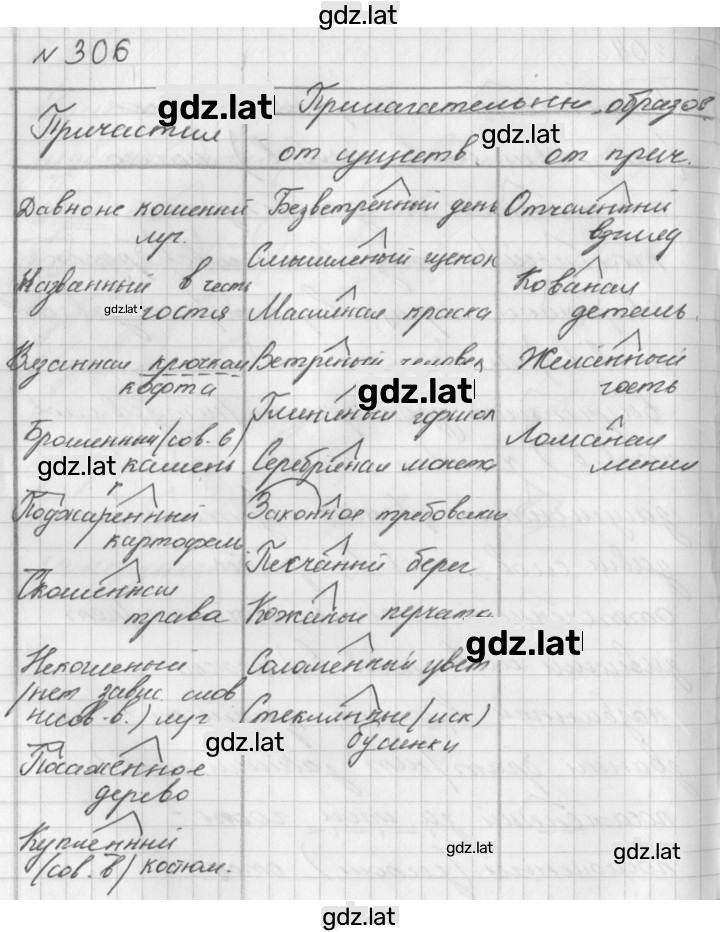 gdz.lat
№ 306
gdz.lat
Причастия
Прилагательные, образов.
gdz.lat
от существ. от прич.
Давноне кошенный Безветренный день Отчаянный
луг. взгляд
Смышленый щенок
Названный в честь Кованая
gdz.lat гостя Масляная краска деталь.
Вязанная крючком Ветреный человек Желанный
кофта гость
gdz.lat
Глиняный горшок
Брошенный (сов. в) Ломаная
gdz.lat камень Серебряная монета линия
Поджаренный Законное требование
картофель
Песчаный берег
Скошенная
трава Кожаные перчатки
gdz.lat
Некошеный Соломенный цвет
(нет завис. слов
несов. в.) луг Стеклянные (иск)
gdz.lat бусинки
Посаженное
дерево
Купленный
(сов. в) костюм.
gdz.lat
gdz.lat
gdz.lat